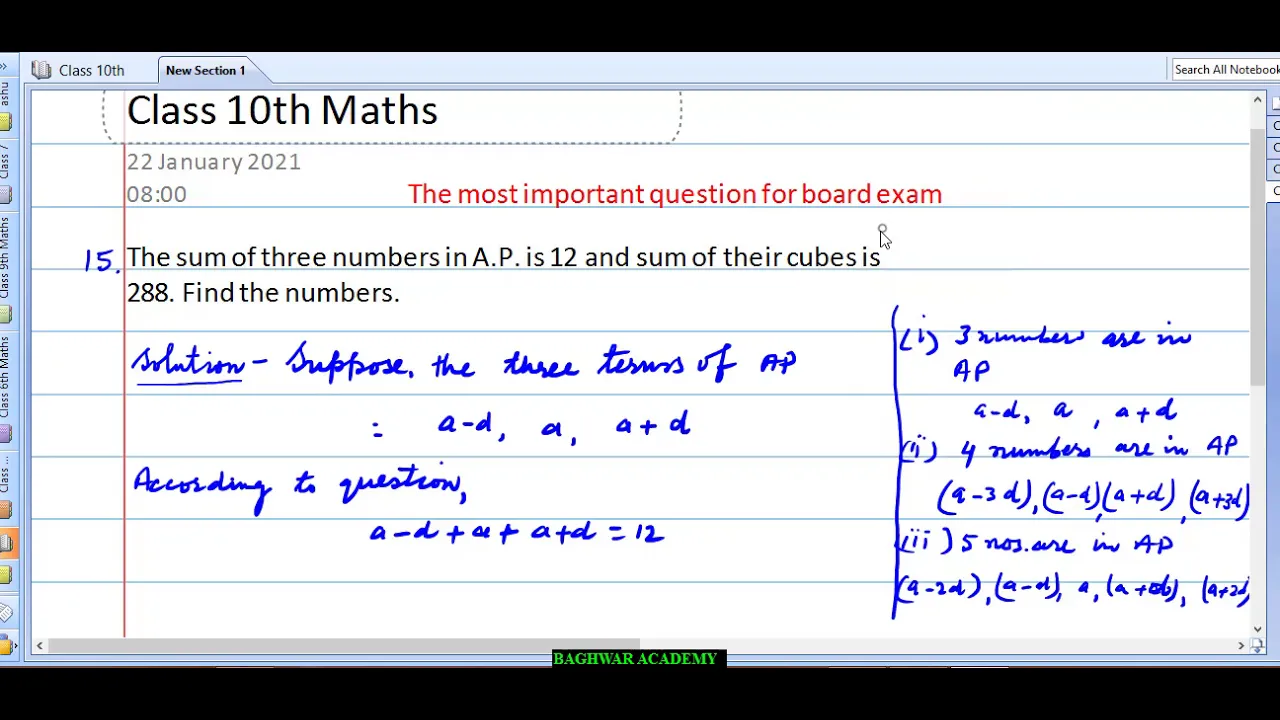 Class 10th
New Section 1
Search All Notebook
Class 10th Maths
22 January 2021
08:00
The most important question for board exam
15. The sum of three numbers in A.P. is 12 and sum of their cubes is
288. Find the numbers.
Solution - Suppose, the three terms of AP
= a-d, a, a+d
According to question,
a-d+a+a+d=12
(i) 3 numbers are in
AP
a-d, a, a+d
(ii) 4 numbers are in AP
(a-3d), (a-d), (a+d), (a+3d)
(iii) 5 nos. are in AP
(a-2d), (a-d), a, (a+d), (a+2d)
ashu
Class 7
Class 9th Maths
Class 6th Maths
Class ...
BAGHWAR ACADEMY